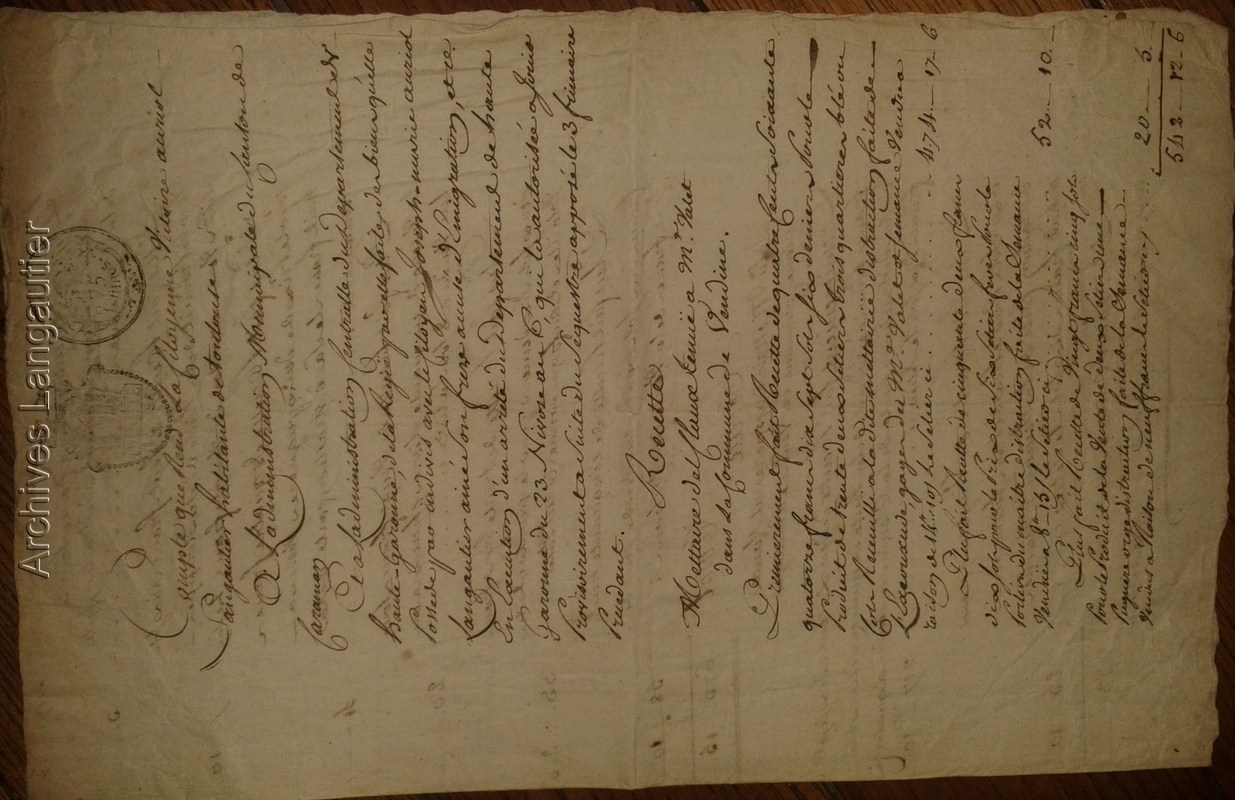 Archives Langautier
Compte que Rend La Citoyenne Victoire auriol
Langautier habitante de toulouse
A L'administration Municipale du Canton de
Caraman
Et a L'administration Centralle du departement de
haute-garonne de la Regie par elle faite des biens qu'elle
Possede par indivis avec le citoyen joseph-marie auriol
Langautier ainé son frere au de L'emigration, et ce
En Execution d'un arrêté du departement de haute
Garonne du 23 Nivose an 6 qui L'a autorisée a jouir
Provisoirement a Suite du Sequestre apposé le 3 frimaire
Precedant.
Recette
Mettairie del Roux tenuë a Mr. Valet
dans la Commune de Vendine.
Premierement fait Recette de quatre Cents Soixante
quatorze francs dix sept sols six deniers Pour le
Produit de trente deux setiers trois quartieres bléd ou
Recuilli a la dite mettairie distraction faite de
gages des Mes. Valets et semence Vendu a
raison de 14# 10s he setier ci ........ 474 — 17 — 6
Plus fait Recette de cinquante deux francs
dix sols pour le Prix de Six
Portion du distraction faite de la Semance
Vendu a 8# 15s le Setier ci ........ 52 — 10. —
Plus fait Recette de Vingt francs cinq sols
Pour le Produit de la Vente de deux Setiers une
Pugnere orge distraction faite de la Semance
Vendus a Raison de neuf francs le Setier ci .. 20 — 5.
542 — 12 — 6